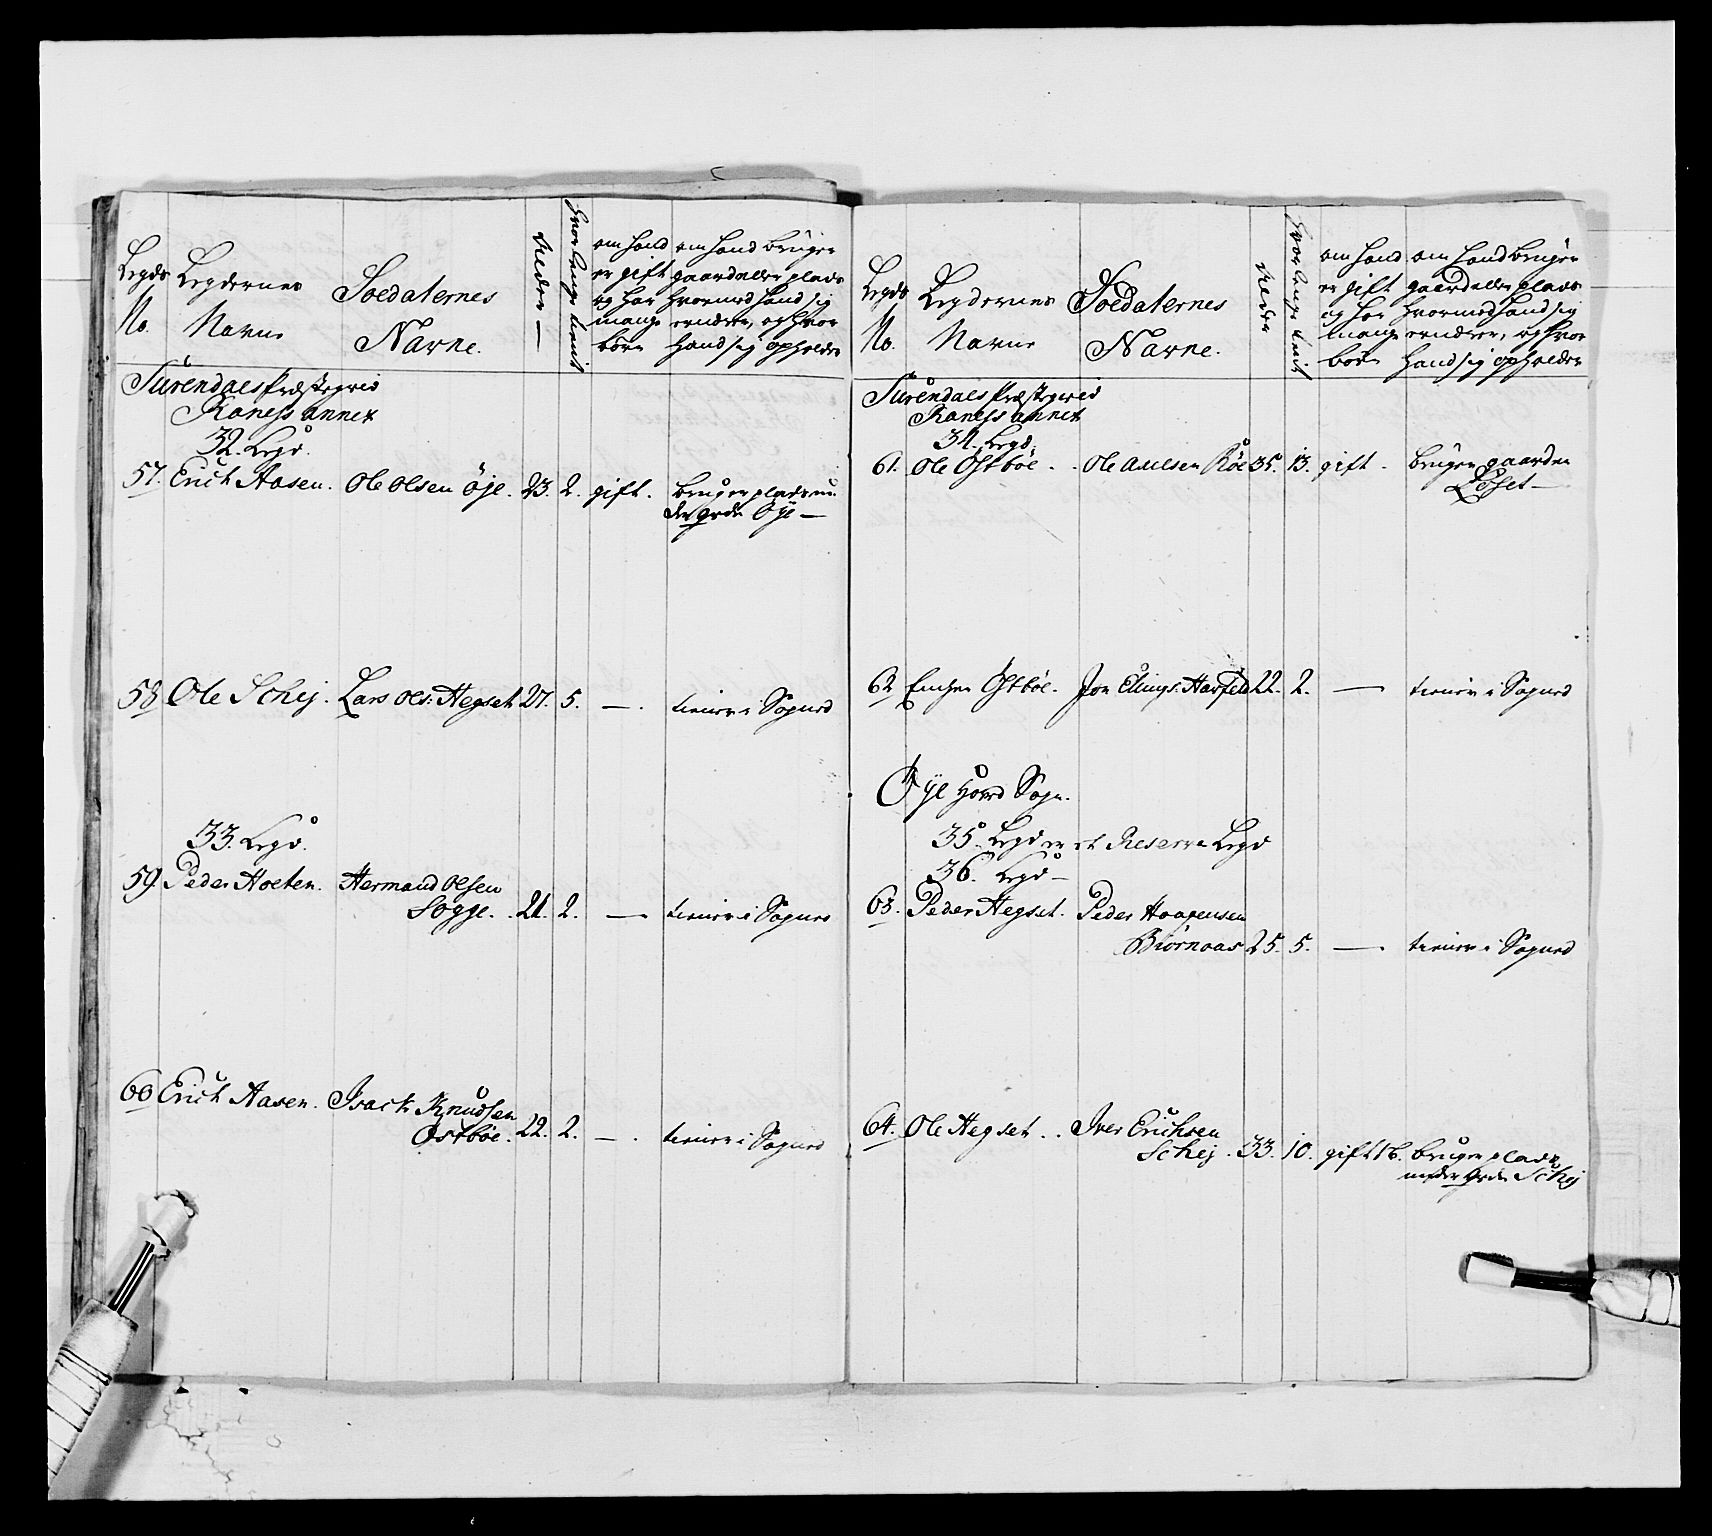 Legds
No.
Legdernes
Navne
Soldaternes
Navne.
Alder
hvor lenge tient
om hand
er gift
og har
mange
börn
om hand bruger
gaard eller plads
hvormed hand sig
ernærer, og hvor
hand sig opholder
Surendals Præstegield
Ranes annex
32. Legd.
57. Erich Aasen. Ole Olsen Öje. 23. 2. gift. bruger plads un-
der grdn Öje —
58 Ole Schej. Lars Ols: Hegset 27. 5. —. tiener i Sognet
33. Legd.
59. Peder Holten. Hermand Olsen
Sogge. 21. 2. — tiener i Sognet
60 Erich Aasen. Isach Knudsen
Ostböe. 22. 2. —. tiener i Sognet
Legds
No.
Legdernes
Navne
Soldaternes
Navne.
Alder
hvor lenge tient
om hand
er gift
og har
mange
börn
om hand bruger
gaard eller plads
hvormed hand sig
ernærer, og hvor
hand sig opholder
Surendals Præstegield
Ranes annex
34. Legd.
61. Ole Östböe. Ole Olsen Röe 35. 13. gift. bruger gaarden
62 Östböe. Jon Elings: Harfeld 22. 2. — tiener i Sognet
Öye Hoved Sogn.
35. Legd er et Reserve Legd
36. Legd —
63. Peder Hegset. Peder Haagensen
Biörnaas 25. 5. —. tiener i Sognet
64. Ole Hegset. Iver Erichsen
Schej. 33. 10. gift 1 b. bruger plads
under grdn Schej